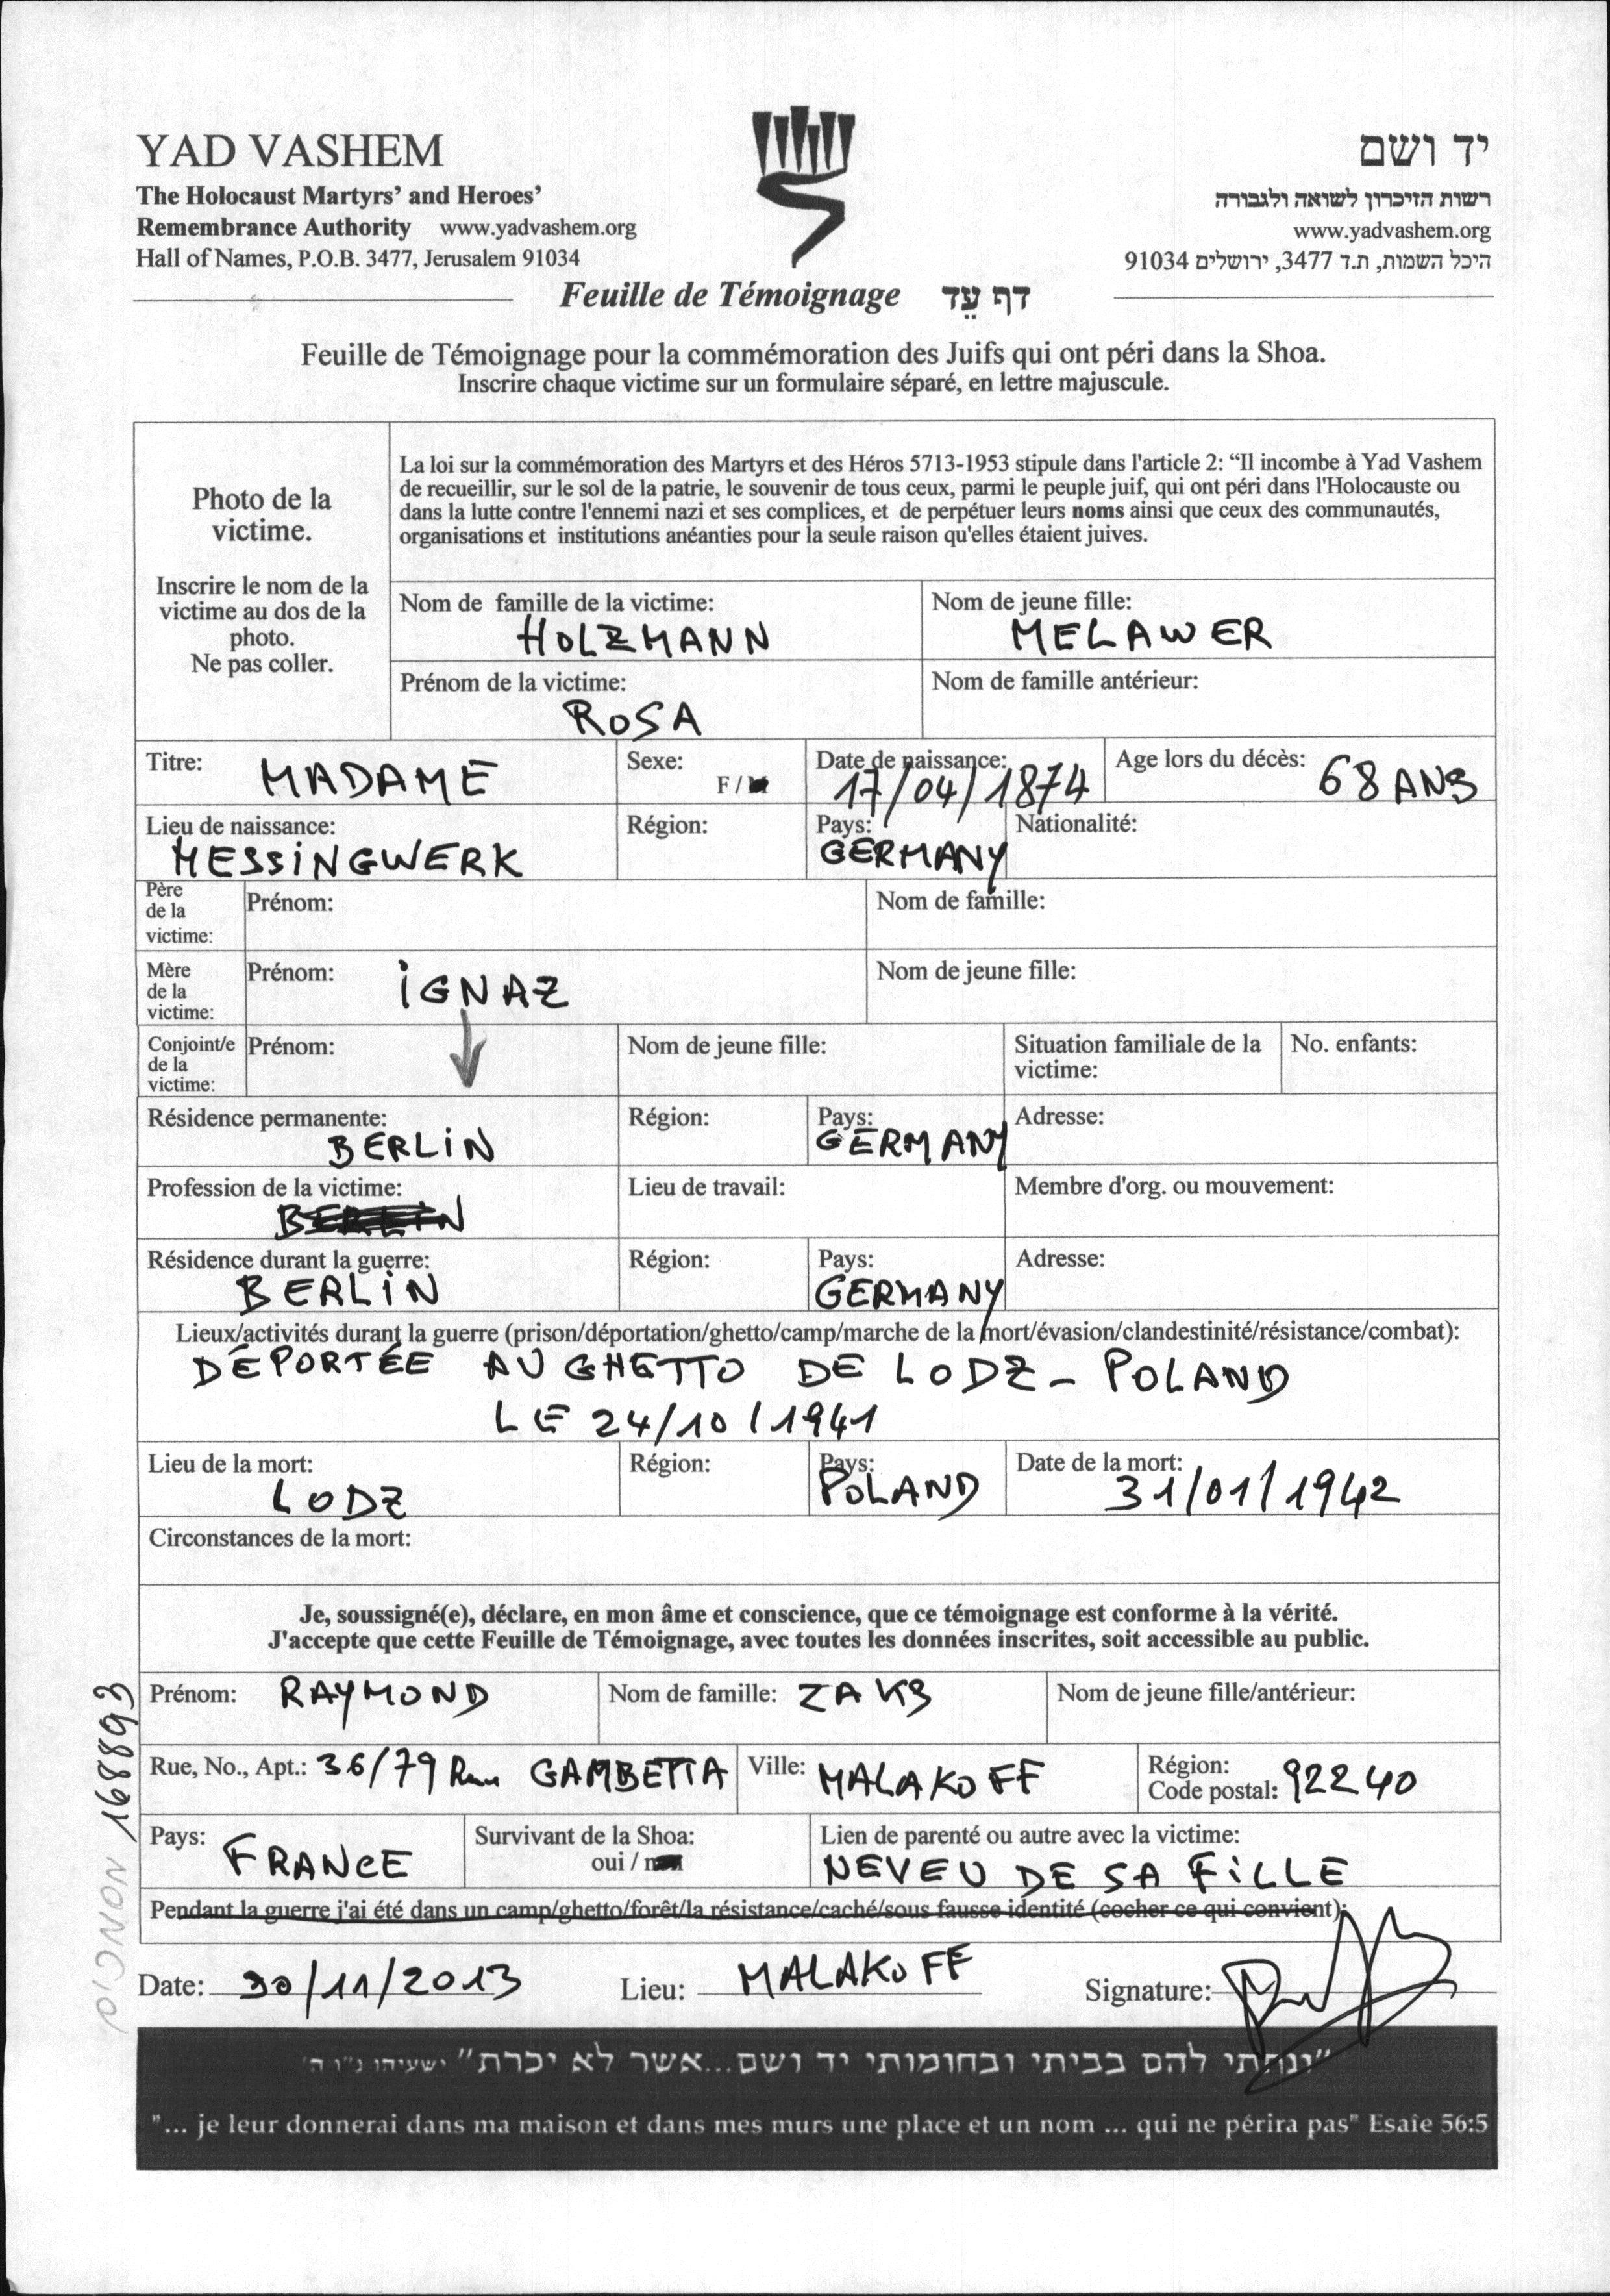 YAD VASHEM
The Holocaust Martyrs' and Heroes'
Remembrance Authority www.yadvashem.org
Hall of Names, P.O.B. 3477, Jerusalem 91034
יד ושם
רשות הזיכרון לשואה ולגבורה
www.yadvashem.org
היכל השמות, ת.ד 3477, ירושלים 91034
Feuille de Témoignage דף עֵד
Feuille de Témoignage pour la commémoration des Juifs qui ont péri dans la Shoa.
Inscrire chaque victime sur un formulaire séparé, en lettre majuscule.
Photo de la
victime.
Inscrire le nom de la
victime au dos de la
photo.
Ne pas coller.
La loi sur la commémoration des Martyrs et des Héros 5713-1953 stipule dans l'article 2: “Il incombe à Yad Vashem
de recueillir, sur le sol de la patrie, le souvenir de tous ceux, parmi le peuple juif, qui ont péri dans l'Holocauste ou
dans la lutte contre l'ennemi nazi et ses complices, et de perpétuer leurs noms ainsi que ceux des communautés,
organisations et institutions anéanties pour la seule raison qu'elles étaient juives.
Nom de famille de la victime: Nom de jeune fille:
HOLZMANN MELAWER
Prénom de la victime: Nom de famille antérieur:
ROSA
Titre: MADAME Sexe: F / Date de naissance: 17/04/1874 Age lors du décès: 68 ANS
Lieu de naissance: Région: Pays: Nationalité:
MESSINGWERK GERMANY
Père
de la
victime:
Prénom: Nom de famille:
Mère
de la
victime:
Prénom: IGNAZ Nom de jeune fille:
Conjoint/e
de la
victime:
Prénom: Nom de jeune fille: Situation familiale de la
victime:
No. enfants:
Résidence permanente: Région: Pays: Adresse:
BERLIN GERMANY
Profession de la victime: Lieu de travail: Membre d'org. ou mouvement:
BERLIN
Résidence durant la guerre: Région: Pays: Adresse:
BERLIN GERMANY
Lieux/activités durant la guerre (prison/déportation/ghetto/camp/marche de la mort/évasion/clandestinité/résistance/combat):
DÉPORTÉE AU GHETTO DE LODZ - POLAND
LE 24/10/1941
Lieu de la mort: Région: Pays: Date de la mort:
LODZ POLAND 31/01/1942
Circonstances de la mort:
Je, soussigné(e), déclare, en mon âme et conscience, que ce témoignage est conforme à la vérité.
J'accepte que cette Feuille de Témoignage, avec toutes les données inscrites, soit accessible au public.
Prénom: RAYMOND Nom de famille: ZAKS Nom de jeune fille/antérieur:
Rue, No., Apt.: 36/79 Rue GAMBETTA Ville: MALAKOFF Région:
Code postal: 92240
Pays: FRANCE Survivant de la Shoa:
oui / non
Lien de parenté ou autre avec la victime:
NEVEU DE SA FILLE
Pendant la guerre j'ai été dans un camp/ghetto/forêt/la résistance/caché/sous fausse identité (cocher ce qui convient):
Date: 30/11/2013 Lieu: MALAKOFF Signature:
168893
"ונתתי להם בביתי ובחומותי יד ושם...אשר לא יכרת" ישעיהו נ"ו ה'
"... je leur donnerai dans ma maison et dans mes murs une place et un nom ... qui ne périra pas" Esaïe 56:5